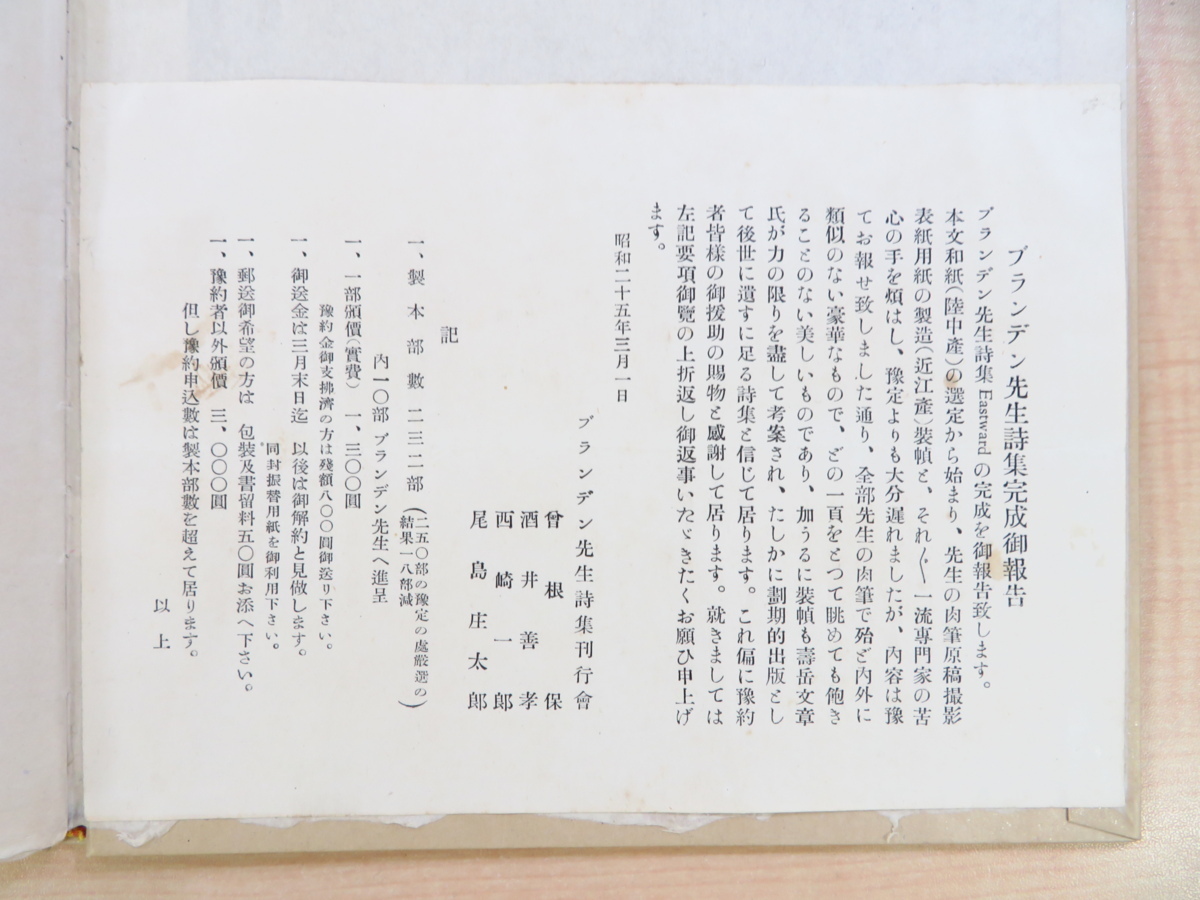 ブランデン先生詩集完成御報告
ブランデン先生詩集 Eastward の完成を御報告致します。
本文和紙(陸中產)の選定から始まり、先生の肉筆原稿撮影
表紙用紙の製造(近江產)裝幀と、それ〱一流專門家の苦
心の手を煩はし、豫定よりも大分遲れましたが、內容は豫
てお報せ致しました通り、全部先生の肉筆で殆ど內外に
類似のない豪華なもので、どの一頁をとつて眺めても飽き
ることのない美しいものであり、加うるに裝幀も壽岳文章
氏が力の限りを盡して考案され、たしかに劃期的出版とし
て後世に遺すに足る詩集と信じて居ります。これ偏に豫約
者皆樣の御援助の賜物と感謝して居ります。就きましては
左記要項御覽の上折返し御返事いたゞきたくお願ひ申上げ
ます。
昭和二十五年三月一日
ブランデン先生詩集刊行會
曾根保
酒井善孝
西崎一郎
尾島庄太郎
記
一、製本部數 二三二部(二五〇部の豫定の處嚴選の
結果一八部減)
內一〇部 ブランデン先生へ進呈
一、一部頒價(實費) 一、三〇〇圓
豫約金御支拂濟の方は殘額八〇〇圓御送り下さい。
一、御送金は三月末日迄 以後は御解約と見做します。
同封振替用紙を御利用下さい。
一、郵送御希望の方は 包裝及書留料五〇圓お添へ下さい。
一、豫約者以外頒價 三、〇〇〇圓
但し豫約申込數は製本部數を超えて居ります。
以上